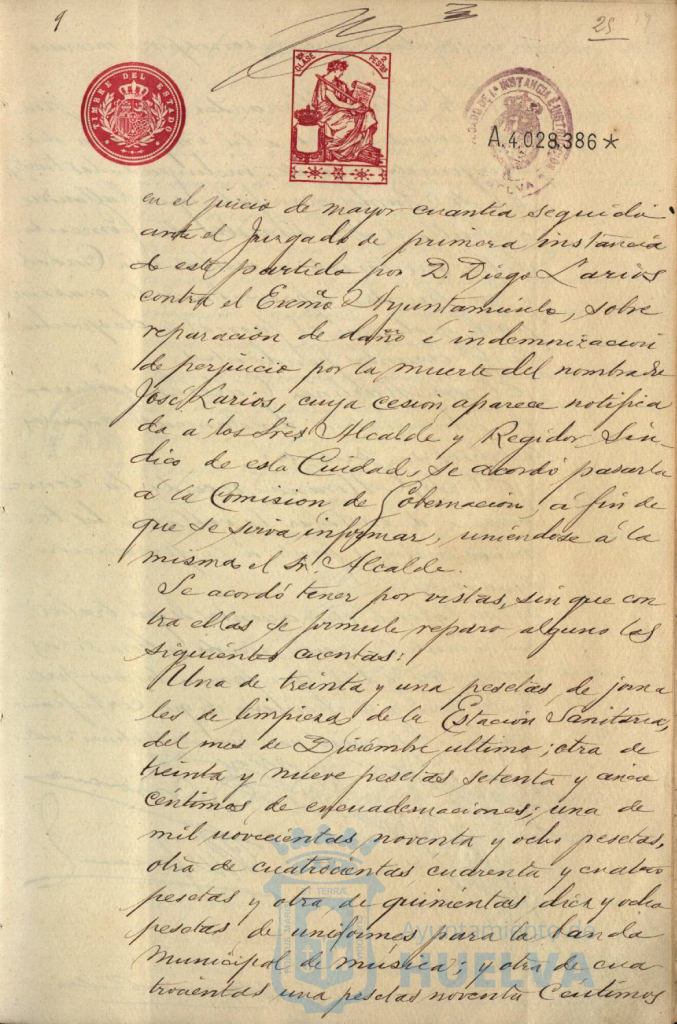 9
25
TIMBRE DEL ESTADO
CLASE 2 PESTAS
A.4.028.386*
en el juicio de mayor cuantia seguido
ante el Juzgado de primera instancia
de este partido por D. Diego Larios
contra el Excmo Ayuntamiento, sobre
reparación de daño é indemnizacion
de perjuicio por la muerte del nombrado
José Larios, cuya cesión aparece notifica
da á los Sres Alcalde y Regidor Sín-
dico de esta Cuidad, se acordó pasarla
á la Comision de Gobernación, á fin de
que se sirva informar, uniéndose á la
misma el Sr. Alcalde.
Se acordó tener por vistas, sin que con
tra ellas se formule reparo alguno las
siguientes cuentas:
Una de treinta y una pesetas, de jorna
les de limpieza de la Estación Sanitaria,
del mes de Diciembre ultimo; otra de
treinta y nueve pesetas setenta y cinco
céntimos, de encuadernaciones; una de
mil novecientas noventa y ocho pesetas,
otra de cuatrocientas cuarenta y cuatro
pesetas y otra de quinientas diez y ocho
pesetas de uniformes para la banda
Municipal de musica; y otra de cua
trocientas una pesetas noventa Centimos
Ayuntamiento de
HUELVA